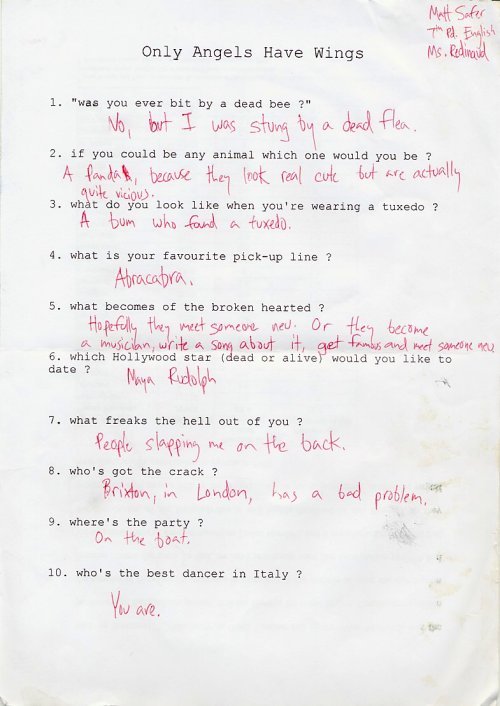 Matt Safer
7th Pd. English
Ms. Redinavid
Only Angels Have Wings
1. "was you ever bit by a dead bee ?"
No, but I was stung by a dead flea.
2. if you could be any animal which one would you be ?
A panda, because they look real cute but are actually
quite vicious.
3. what do you look like when you're wearing a tuxedo ?
A bum who found a tuxedo.
4. what is your favourite pick-up line ?
Abracabra.
5. what becomes of the broken hearted ?
Hopefully they meet someone new. Or they become
a musician, write a song about it, get famous and meet someone new
6. which Hollywood star (dead or alive) would you like to
date ?
Maya Rudolph
7. what freaks the hell out of you ?
People slapping me on the back.
8. who's got the crack ?
Brixton, in London, has a bad problem.
9. where's the party ?
On the boat.
10. who's the best dancer in Italy ?
You are.